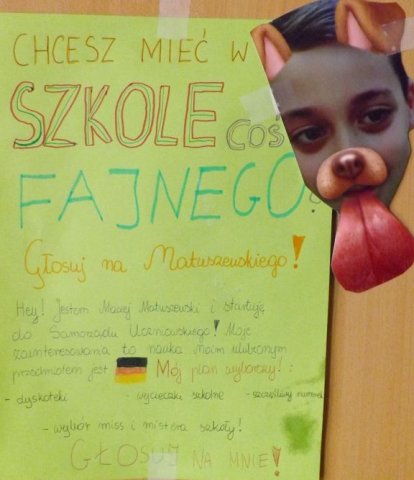 CHCESZ MIEĆ W
SZKOLE COŚ
FAJNEGO?
Głosuj na Matuszewskiego!
Hey! Jestem Maciej Matuszewski i startuję
do Samorządu Uczniowskiego! Moje
zainteresowania to nauka moim ulubionym
przedmiotem jest Mój plan wyborczy! :
- dyskoteki - wycieczki szkolne - szczęśliwy numerek
- wybór miss i mistera szkoły!
GŁOSUJ NA MNIE!